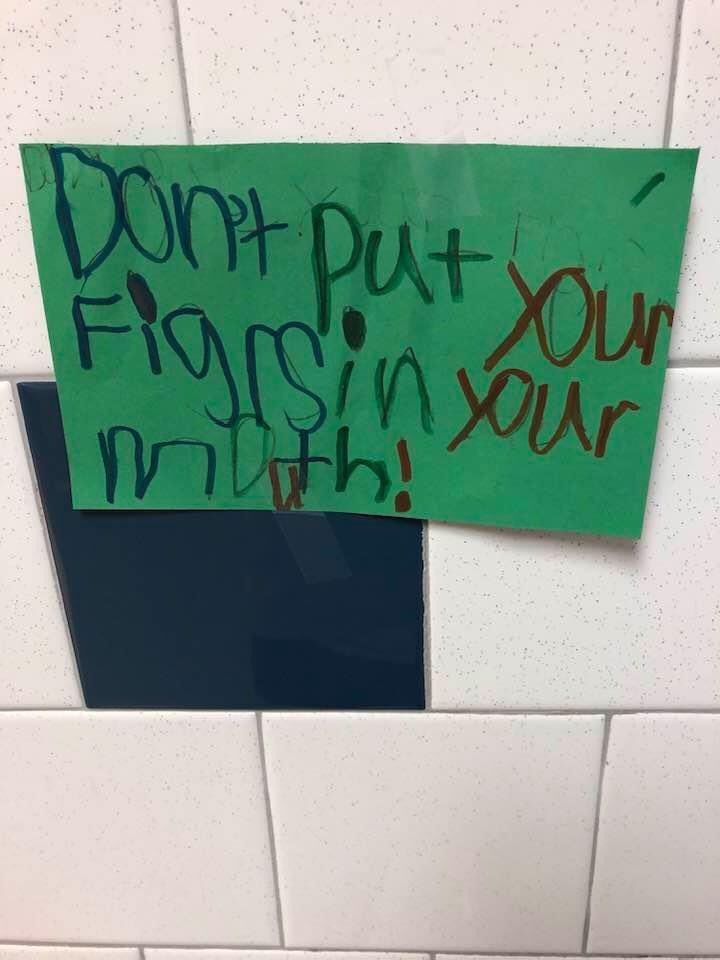 Don't put your
Figrs in your
mouth!